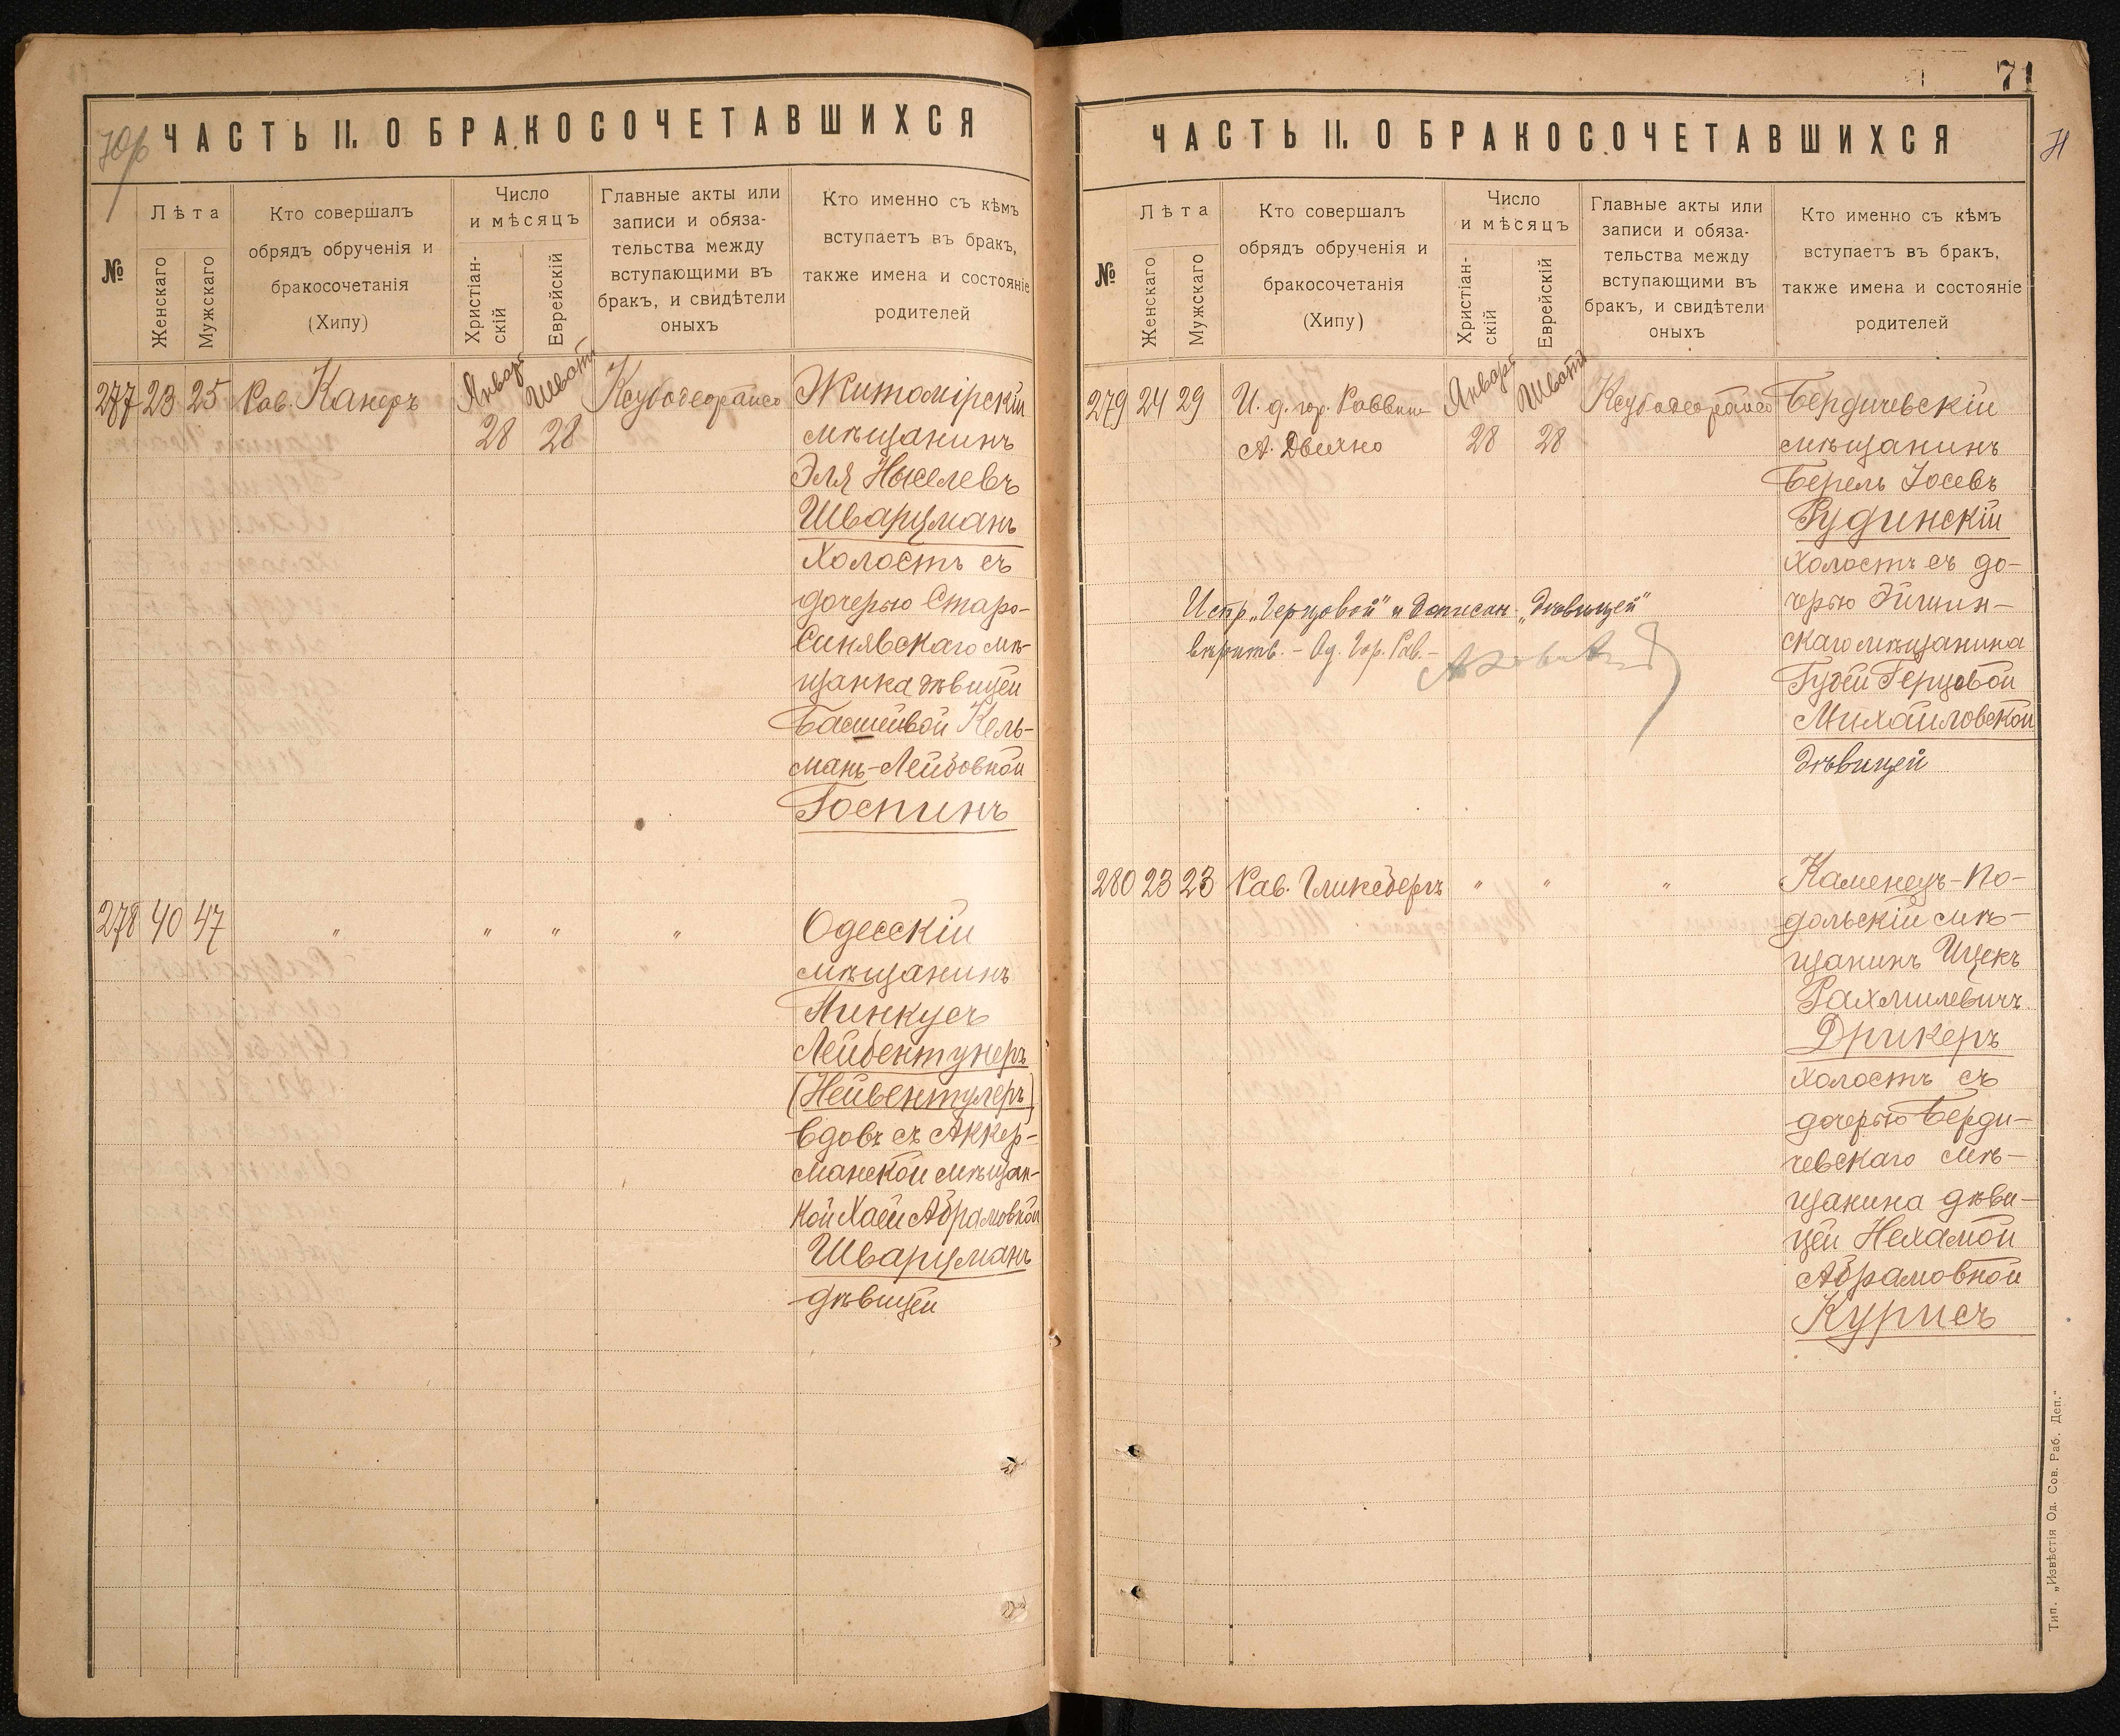 70б
ЧАСТЬ II. О БРАКОСОЧЕТАВШИХСЯ
№
Лѣта
Женскаго
Мужскаго
Кто совершалъ
обрядъ обрученія и
бракосочетанія
(Хипу)
Число
и мѣсяцъ
Христіан-
скій
Еврейскій
Главные акты или
записи и обяза-
тельства между
вступающими въ
бракъ, и свидѣтели
оныхъ
Кто именно съ кѣмъ
вступаетъ въ бракъ,
также имена и состояніе
родителей
277 23 25 Рав. Канеръ Январь 28 Шватъ 28 Житомірскій
мѣщанинъ
Эля Ныселевъ
Шварцманъ
холостъ съ
дочерью Старо-
Синявскаго мѣ-
щанка дѣвицей
Башейвой Кель-
манъ-Лейбовной
Госпинъ
278 40 47 " " " " Одесскій
мѣщанинъ
Пинкусъ
Лейбентулеръ
(Нейвентулеръ)
вдовъ съ Аккер-
манской мѣщан-
кой Хаей Абрамовной
Шварцманъ
дѣвицей
71
71
ЧАСТЬ II. О БРАКОСОЧЕТАВШИХСЯ
№
Лѣта
Женскаго
Мужскаго
Кто совершалъ
обрядъ обрученія и
бракосочетанія
(Хипу)
Число
и мѣсяцъ
Христіан-
скій
Еврейскій
Главные акты или
записи и обяза-
тельства между
вступающими въ
бракъ, и свидѣтели
оныхъ
Кто именно съ кѣмъ
вступаетъ въ бракъ,
также имена и состояніе
родителей
279 24 29 И. д. гор. Раввина Январь 28 Шватъ 28 Бердичевскій
мѣщанинъ
Берель Іосевъ
Рудинскій
холостъ съ до-
черью
скаго мѣщанина
Гудей Герцовой
Михайловской
дѣвицей
Испр. „Герцовой" и дописан. „дѣвицей"
вѣрить. - Од. Гор. Рав. -
280 23 23 Рав. Гликсбергъ " " " Каменецъ-По-
дольскій мѣ-
щанинъ Ицекъ
Рахмилевичъ
Дрикеръ
холостъ съ
дочерью Берди-
чевскаго мѣ-
щанина дѣви-
цей Нехамой
Абрамовной
Курисъ
Тип. „Извѣстія Од. Сов. Раб. Деп."